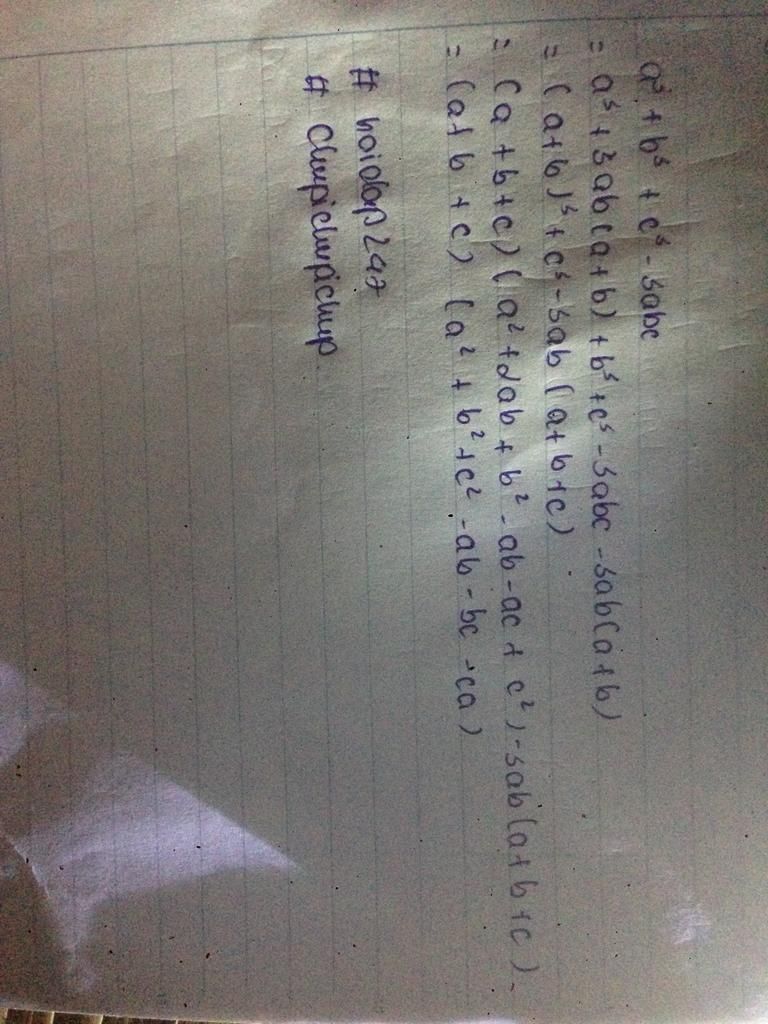 a³ + b³ + c³ - 3abc
= a³ + 3ab(a+b) + b³ + c³ - 3abc - 3ab(a+b)
= (a+b)³ + c³ - 3ab(a+b+c)
= (a+b+c)(a² + 2ab + b² - ab - ac + c²) - 3ab(a+b+c)
= (a+b+c) (a² + b² + c² - ab - bc - ca)
# hoidap247
# Chupichupichup